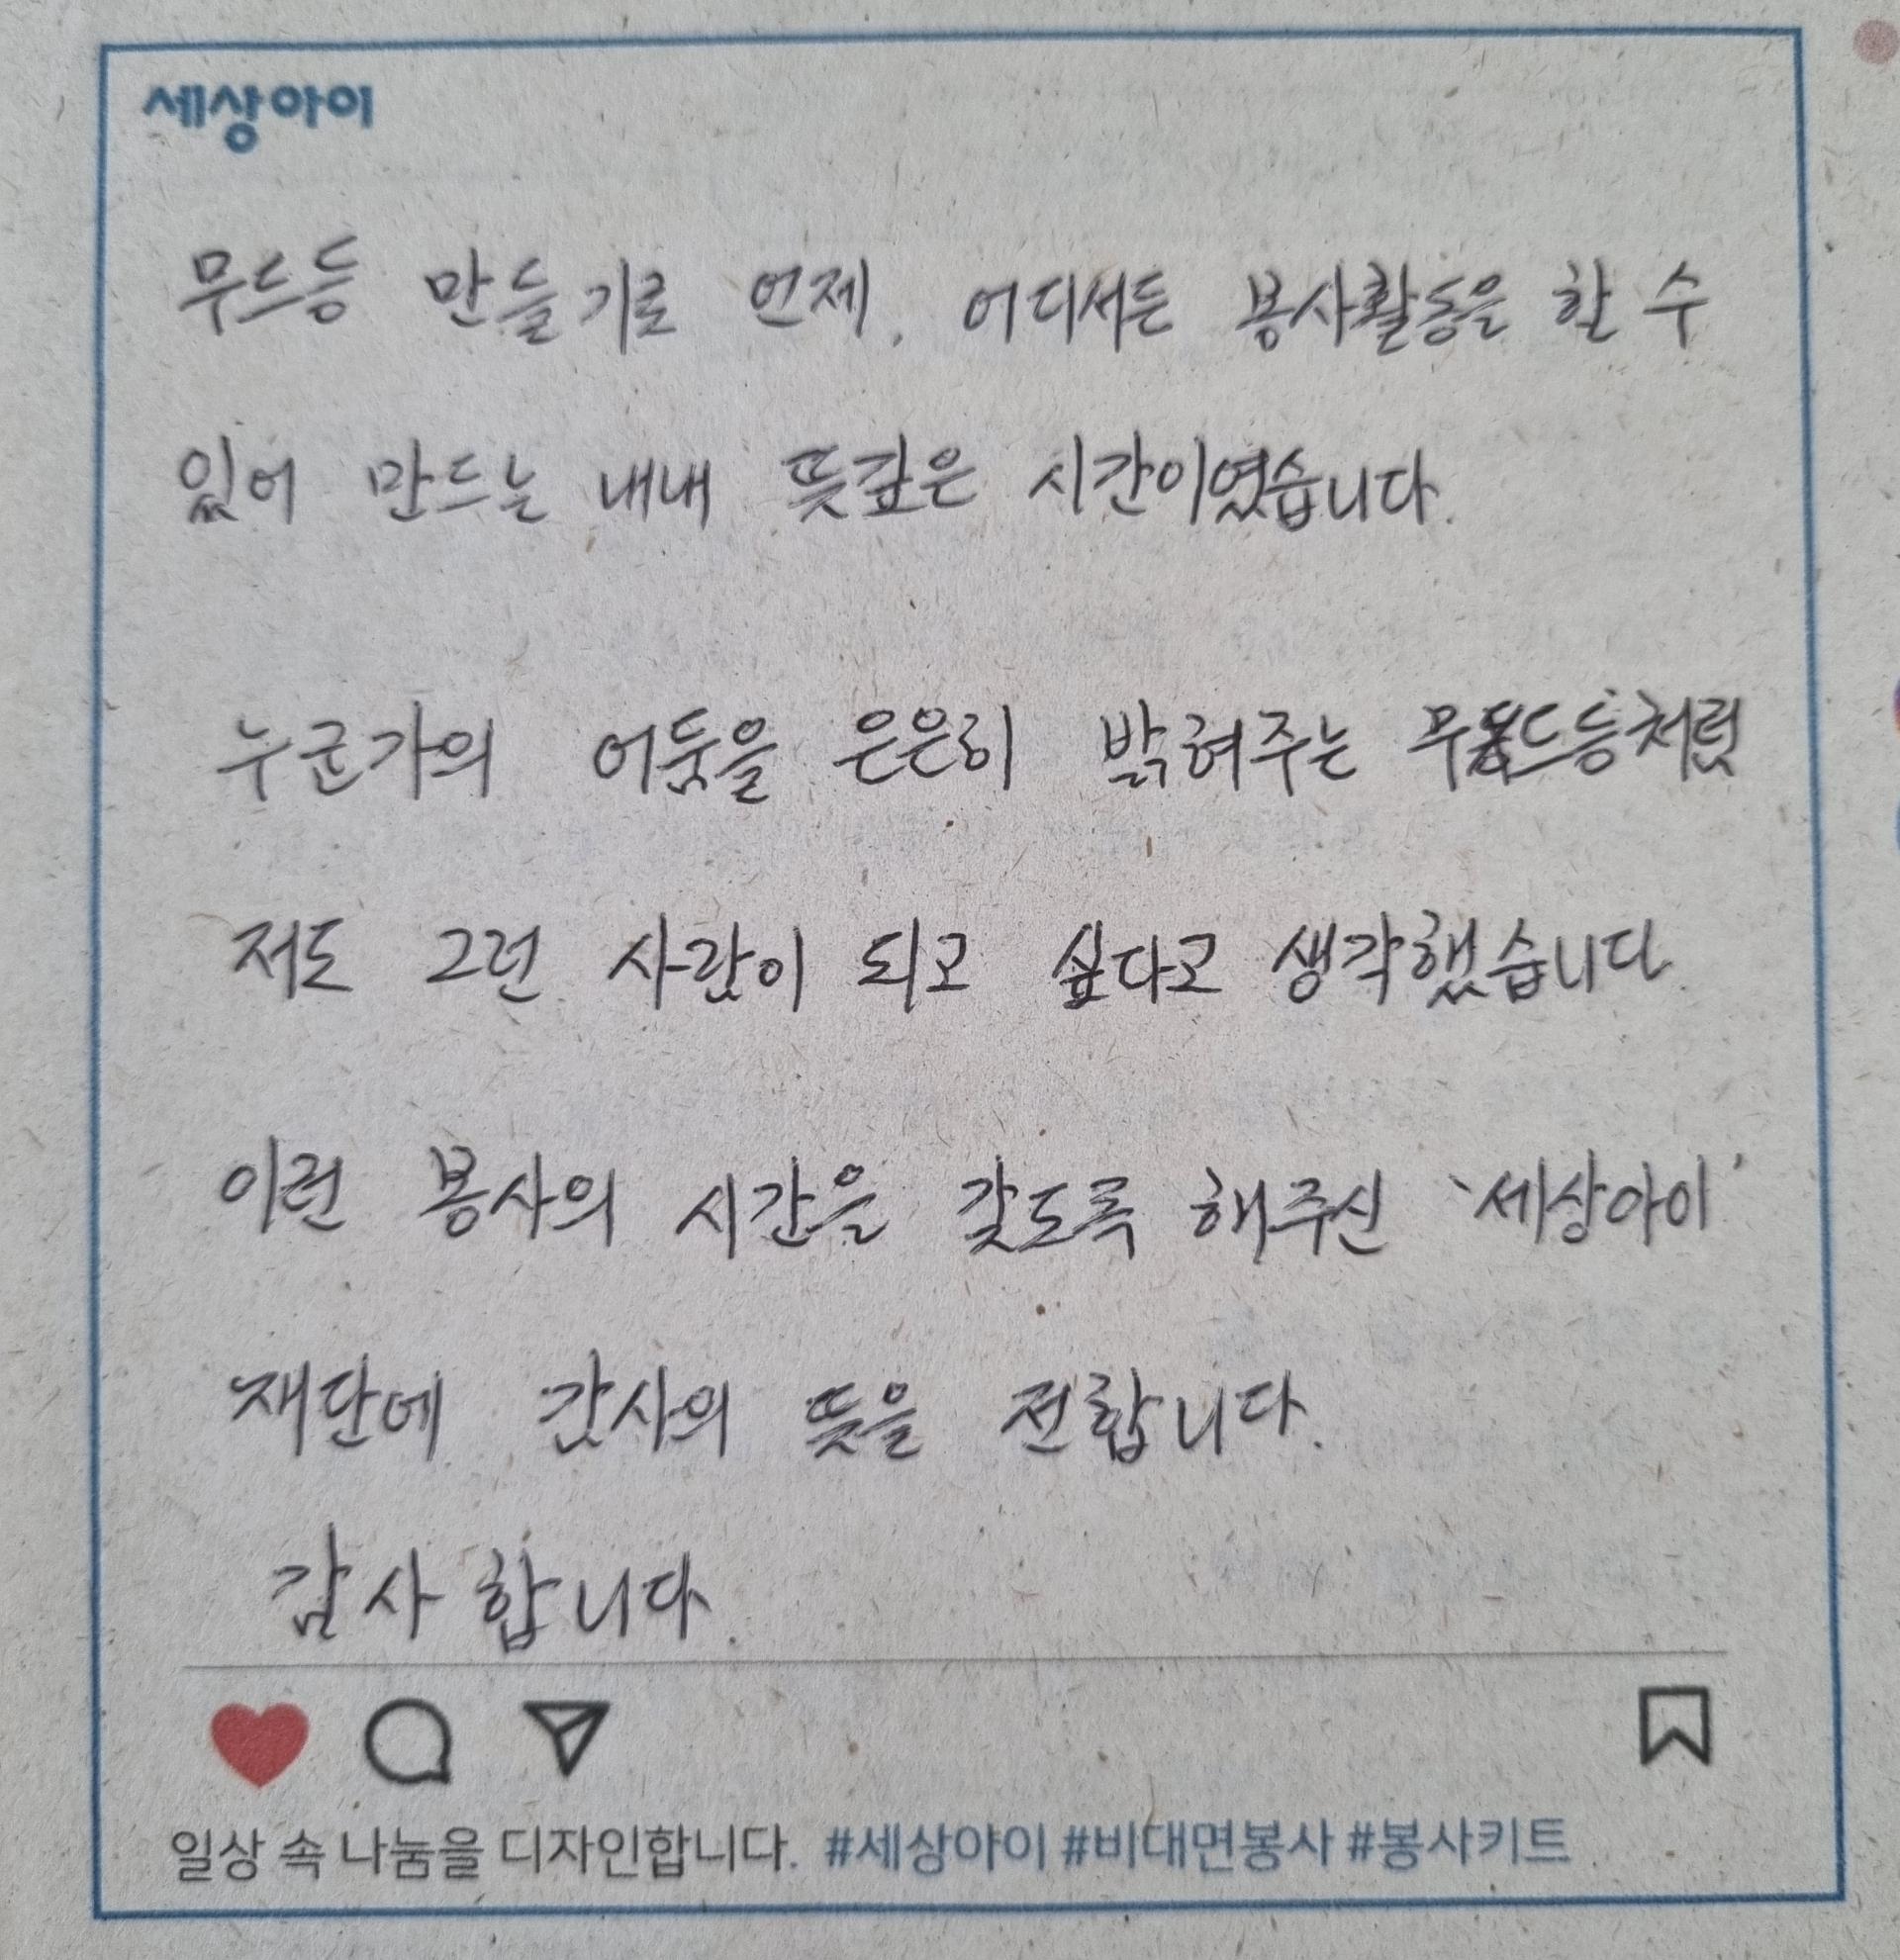 세상아이
무드등 만들기로 언제, 어디서든 봉사활동을 할 수
있어 만드는 내내 뜻깊은 시간이였습니다.
누군가의 어둠을 은은히 밝혀주는 무드등처럼
저도 그런 사람이 되고 싶다고 생각했습니다.
이런 봉사의 시간을 갖도록 해주신 '세상아이'
재단에 감사의 뜻을 전합니다.
감사합니다.
일상 속 나눔을 디자인합니다. #세상아이 #비대면봉사 #봉사키트